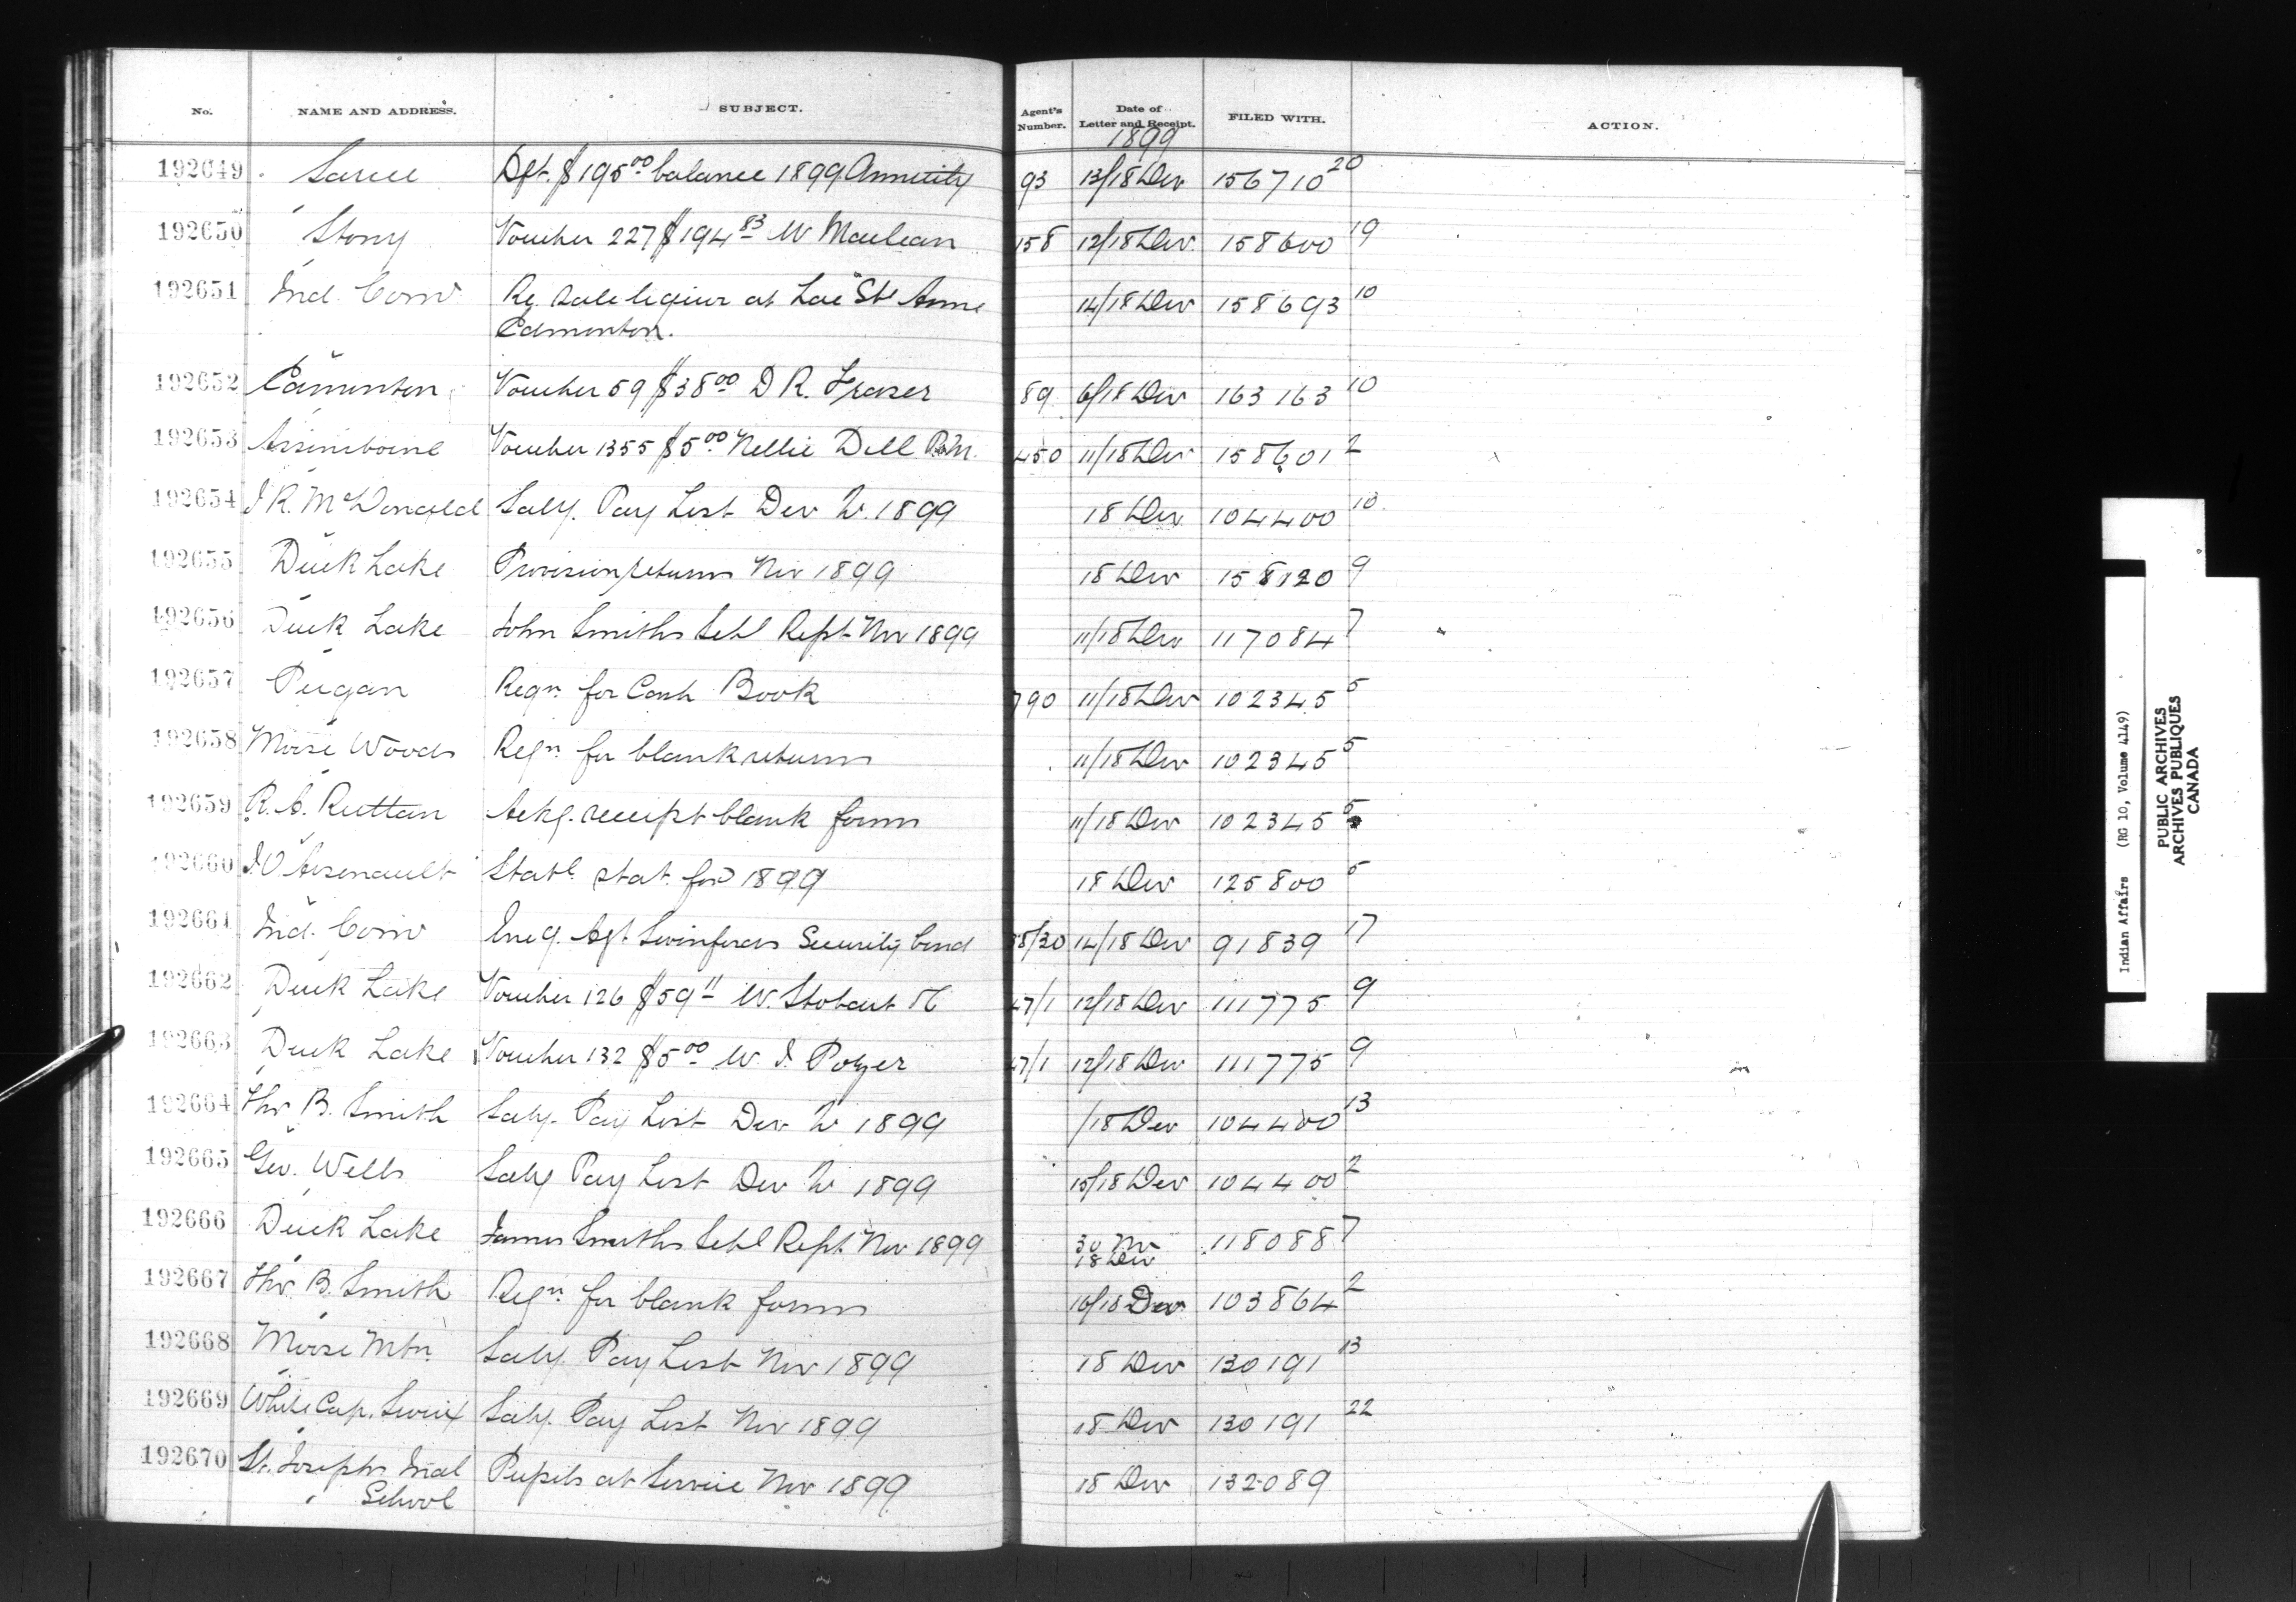 No. NAME AND ADDRESS. SUBJECT. Agent's Number. Date of Letter and Receipt. FILED WITH. ACTION.
1899
192649 Sarcee Dft. $195.00 balance 1899 Annuity 93 13/18 Dec 156710 20
192650 Stony Voucher 227 $194.83 W Maclean 158 12/18 Dec. 158600 19
192651 Ind. Com Re. Sale liquor at Lac Ste Anne 14/18 Dec 158693 10
Edmonton.
192652 Edmonton Voucher 59 $38.00 D R. Fraser 89 6/18 Dec 163163 10
192653 Assiniboine Voucher 1355 $5.00 Nellie Dell 450 11/18 Dec 158601 2
192654 J R. McDonald Saly. Pay List Dec 1899 18 Dec 104400 10
192655 Duck Lake Provision returns Nov 1899 18 Dec 158120 9
192656 Duck Lake John Smiths Schl Rept Nov 1899 11/18 Dec 117084 7
192657 Peigan Reqn. for Cash Book 790 11/18 Dec 102345 5
192658 Moose Woods Reqn. for blank returns 11/18 Dec 102345 5
192659 R. S. Ruttan Ackg. receipt blank forms 11/18 Dec 102345 5
192660 J.O Arsenault Statl. stat. for 1899 18 Dec 125800 5
192661 Ind. Com Encg. Agt. Swinfords Security bond 14/18 Dec 91839 17
192662 Duck Lake Voucher 126 $59.11 W. Stobart 47/1 12/18 Dec 111775 9
192663 Duck Lake Voucher 132 $5.00 W. J. Pozer 47/1 12/18 Dec 111775 9
192664 Thos B. Smith Saly. Pay List Dec 1899 /18 Dec 104400 13
192665 Geo. Wells Saly Pay List Dec 1899 15/18 Dec 104400 2
192666 Duck Lake James Smiths Schl Rept Nov 1899 30 Nov 118088 7
18 Dec
192667 Thos B. Smith Reqn. for blank forms 16/18 Dec 103864 2
192668 Moose Mtn. Saly. Pay List Nov 1899 18 Dec 130191 13
192669 White Cap, Sioux Saly. Pay List Nov 1899 18 Dec 130191 22
192670 St. Josephs Indl Pupils at Service Nov 1899 18 Dec 132089
School
Indian Affairs (RG 10, Volume 4149)
PUBLIC ARCHIVES
ARCHIVES PUBLIQUES
CANADA